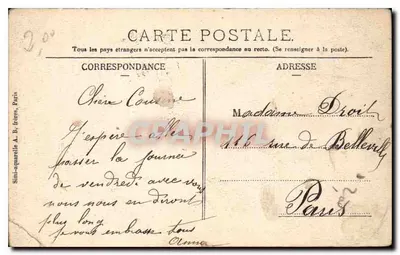 2,00
CARTE POSTALE.
Tous les pays étrangers n'acceptent pas la correspondance au recto. (Se renseigner à la poste).
CORRESPONDANCE
ADRESSE
Chère Cousine
J'espère aller
passer la journée
de vendredi avec vous
nous nous en diront
plus long
je vous embrasse tous
Anna
Madame Droit
116 rue de Belleville
Paris
Simi-aquarelle A. B. frères, Paris
CPAPHIL